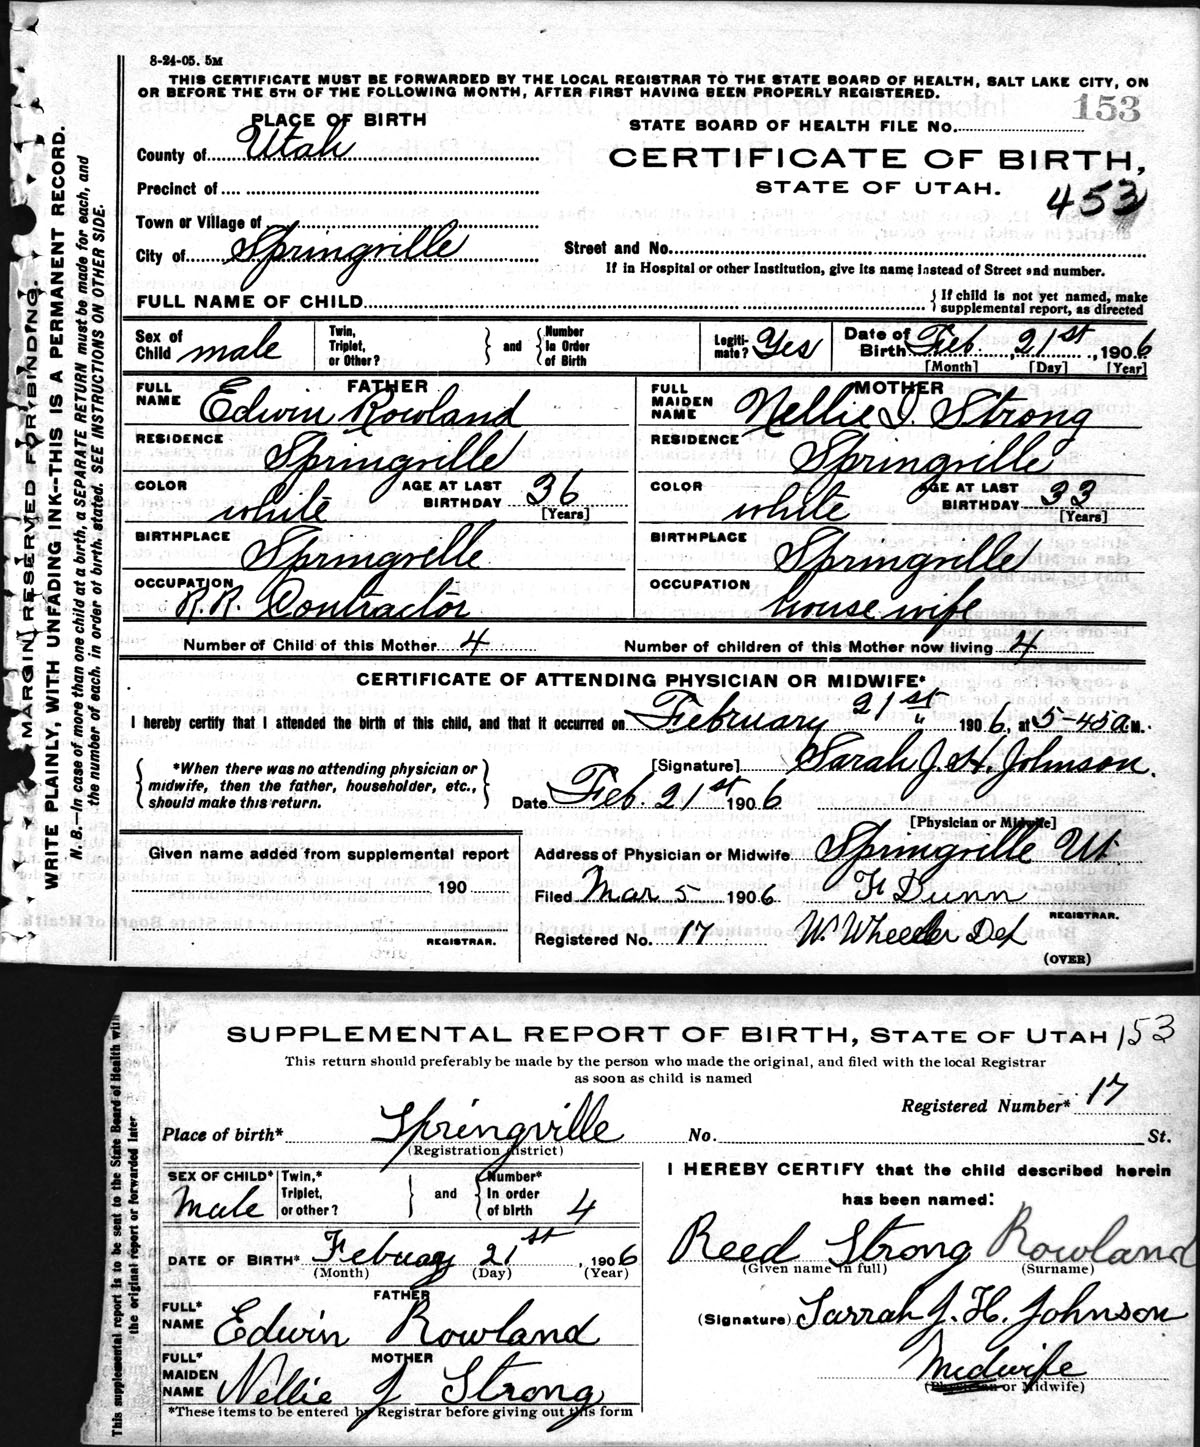 8-24-05. 5M
THIS CERTIFICATE MUST BE FORWARDED BY THE LOCAL REGISTRAR TO THE STATE BOARD OF HEALTH, SALT LAKE CITY, ON
OR BEFORE THE 5TH OF THE FOLLOWING MONTH, AFTER FIRST HAVING BEEN PROPERLY REGISTERED.
PLACE OF BIRTH
STATE BOARD OF HEALTH FILE No. 153
County of Utah
CERTIFICATE OF BIRTH,
Precinct of
STATE OF UTAH. 453
Town or Village of
City of Springville
Street and No.
If in Hospital or other Institution, give its name instead of Street and number.
FULL NAME OF CHILD
{ If child is not yet named, make
supplemental report, as directed
Sex of Child male
Twin, Triplet, or Other? } and { Number in Order of Birth
Legitimate? Yes
Date of Birth Feb. 21st, 1906
[Month] [Day] [Year]
FATHER
FULL NAME Edwin Rowland
RESIDENCE Springville
COLOR white AGE AT LAST BIRTHDAY 36
[Years]
BIRTHPLACE Springville
OCCUPATION R.R. Contractor
MOTHER
FULL MAIDEN NAME Nellie J. Strong
RESIDENCE Springville
COLOR white AGE AT LAST BIRTHDAY 33
[Years]
BIRTHPLACE Springville
OCCUPATION house wife
Number of Child of this Mother 4 Number of children of this Mother now living 4
CERTIFICATE OF ATTENDING PHYSICIAN OR MIDWIFE*
I hereby certify that I attended the birth of this child, and that it occurred on February 21st 1906, at 5-45 a M.
{ *When there was no attending physician or
midwife, then the father, householder, etc.,
should make this return. }
[Signature] Sarah J. H. Johnson.
Date Feb. 21st 1906
[Physician or Midwife]
Given name added from supplemental report
190
REGISTRAR.
Address of Physician or Midwife Springville Ut.
Filed Mar 5 1906 F Dunn
REGISTRAR.
Registered No. 17 W. Wheeler Dep
(OVER)
MARGIN RESERVED FOR BINDING.
WRITE PLAINLY, WITH UNFADING INK--THIS IS A PERMANENT RECORD.
N. B.—In case of more than one child at a birth, a SEPARATE RETURN must be made for each, and
the number of each, in order of birth, stated. SEE INSTRUCTIONS ON OTHER SIDE.
SUPPLEMENTAL REPORT OF BIRTH, STATE OF UTAH 153
This return should preferably be made by the person who made the original, and filed with the local Registrar
as soon as child is named
Registered Number* 17
Place of birth* Springville No. St.
(Registration district)
SEX OF CHILD* Male
Twin,* Triplet, or other? } and { Number* in order of birth 4
DATE OF BIRTH* Febuary 21st, 1906
(Month) (Day) (Year)
FATHER
FULL* NAME Edwin Rowland
MOTHER
FULL* MAIDEN NAME Nellie J Strong
*These items to be entered by Registrar before giving out this form
I HEREBY CERTIFY that the child described herein
has been named:
Reed Strong Rowland
(Given name in full) (Surname)
(Signature) Sarrah J. H. Johnson
Midwife
(Physician or Midwife)
This supplemental report is to be sent to the State Board of Health with
the original report or forwarded later